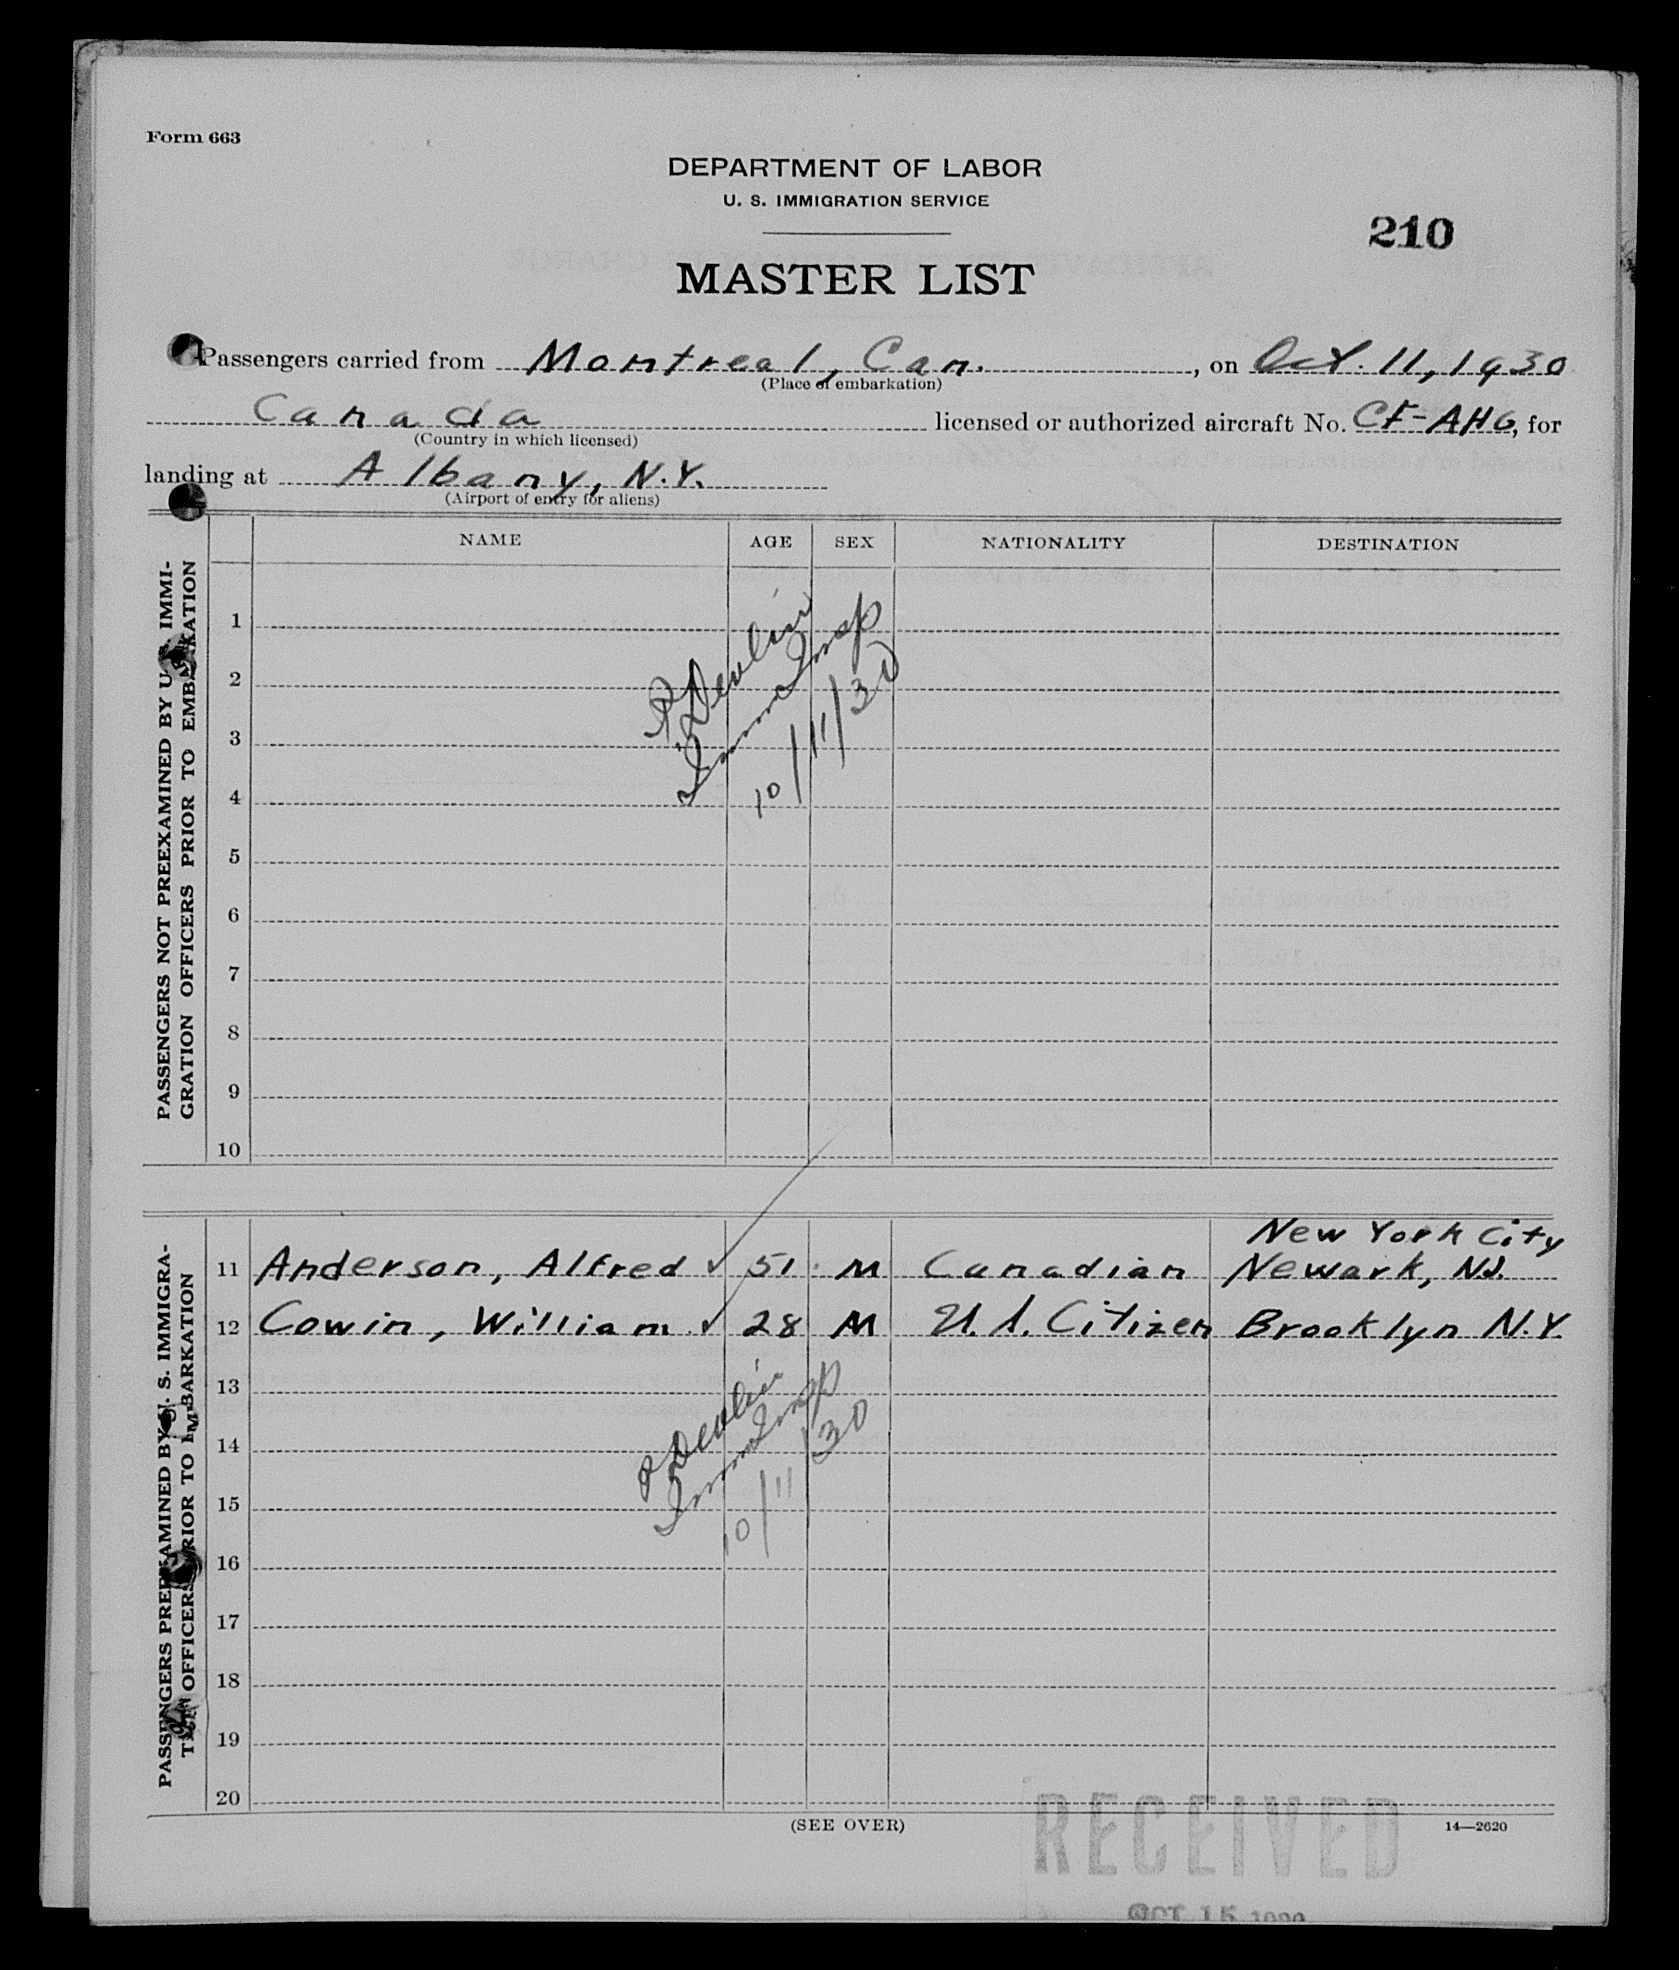 Form 663
DEPARTMENT OF LABOR
U. S. IMMIGRATION SERVICE
210
MASTER LIST
Passengers carried from Montreal, Can. , on Oct. 11, 1930
(Place of embarkation)
Canada licensed or authorized aircraft No. CF-AHG, for
(Country in which licensed)
landing at Albany, N.Y.
(Airport of entry for aliens)
NAME AGE SEX NATIONALITY DESTINATION
PASSENGERS NOT PREEXAMINED BY U. S. IMMI-
GRATION OFFICERS PRIOR TO EMBARKATION
1
2
3
4
5
6
7
8
9
10
Devlin
Imm Insp
10/11/30
PASSENGERS PREEXAMINED BY U. S. IMMIGRA-
TION OFFICERS PRIOR TO EMBARKATION
New York City
11 Anderson, Alfred ✓ 51 M Canadian Newark, N.J.
12 Cowin, William ✓ 28 M U.S. Citizen Brooklyn N.Y.
13
14
15
16
17
18
19
20
Devlin
Imm Insp
10/11/30
(SEE OVER)
14—2620
RECEIVED
OCT 15 1930